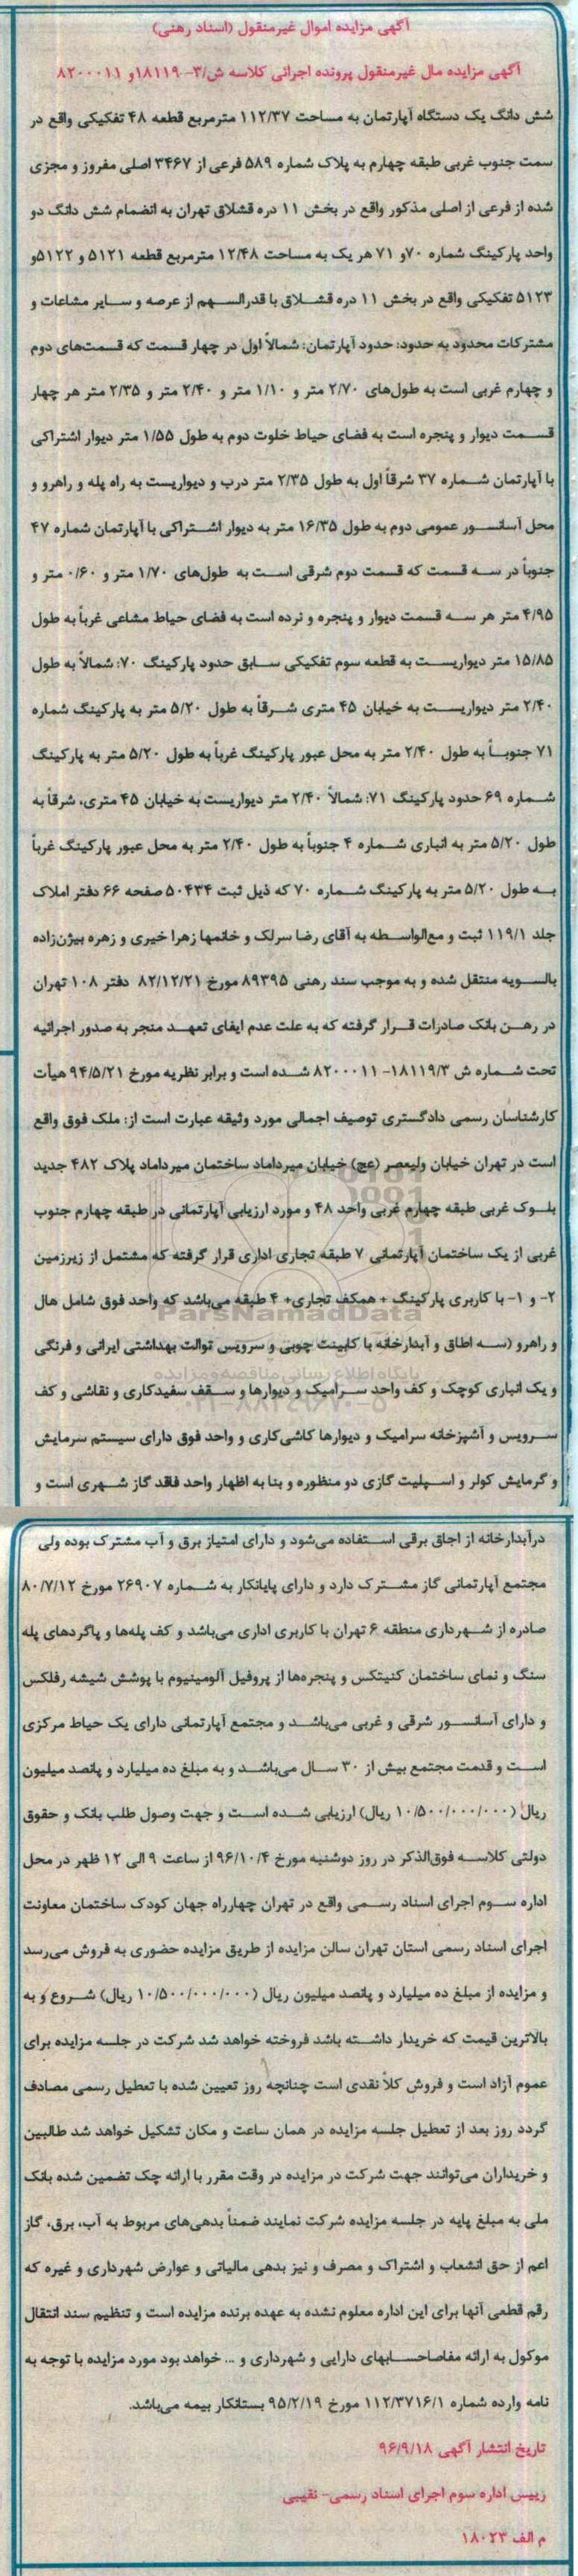 آگهی مزایده اموال غیرمنقول (اسناد رهنی)
آگهی مزایده مال غیرمنقول پرونده اجرائی کلاسه ش/۳- ۱۸۱۱۹و ۸۲۰۰۰۱۱
شش دانگ یک دستگاه آپارتمان به مساحت ۱۱۲/۳۷ مترمربع قطعه ۴۸ تفکیکی واقع در
سمت جنوب غربی طبقه چهارم به پلاک شماره ۵۸۹ فرعی از ۳۴۶۷ اصلی مفروز و مجزی
شده از فرعی از اصلی مذکور واقع در بخش ۱۱ دره قشلاق تهران به انضمام شش دانگ دو
واحد پارکینگ شماره ۷۰و ۷۱ هر یک به مساحت ۱۲/۴۸ مترمربع قطعه ۵۱۲۱ و ۵۱۲۲و
۵۱۲۳ تفکیکی واقع در بخش ۱۱ دره قشلاق با قدرالسهم از عرصه و سایر مشاعات و
مشترکات محدود به حدود: حدود آپارتمان: شمالاً اول در چهار قسمت که قسمت‌های دوم
و چهارم غربی است به طول‌های ۲/۷۰ متر و ۱/۱۰ متر و ۲/۴۰ متر و ۲/۳۵ متر هر چهار
قسمت دیوار و پنجره است به فضای حیاط خلوت دوم به طول ۱/۵۵ متر دیوار اشتراکی
با آپارتمان شماره ۳۷ شرقاً اول به طول ۲/۳۵ متر درب و دیواریست به راه پله و راهرو و
محل آسانسور عمومی دوم به طول ۱۶/۳۵ متر به دیوار اشتراکی با آپارتمان شماره ۴۷
جنوباً در سه قسمت که قسمت دوم شرقی است به طول‌های ۱/۷۰ متر و ۰/۶۰ متر و
۴/۹۵ متر هر سه قسمت دیوار و پنجره و نرده است به فضای حیاط مشاعی غرباً به طول
۱۵/۸۵ متر دیواریست به قطعه سوم تفکیکی سابق حدود پارکینگ ۷۰: شمالاً به طول
۲/۴۰ متر دیواریست به خیابان ۴۵ متری شرقاً به طول ۵/۲۰ متر به پارکینگ شماره
۷۱ جنوباً به طول ۲/۴۰ متر به محل عبور پارکینگ غرباً به طول ۵/۲۰ متر به پارکینگ
شماره ۶۹ حدود پارکینگ ۷۱: شمالاً ۲/۴۰ متر دیواریست به خیابان ۴۵ متری، شرقاً به
طول ۵/۲۰ متر به انباری شماره ۴ جنوباً به طول ۲/۴۰ متر به محل عبور پارکینگ غرباً
به طول ۵/۲۰ متر به پارکینگ شماره ۷۰ که ذیل ثبت ۵۰۴۳۴ صفحه ۶۶ دفتر املاک
جلد ۱۱۹/۱ ثبت و مع‌الواسطه به آقای رضا سرلک و خانمها زهرا خیری و زهره بیژن‌زاده
بالسویه منتقل شده و به موجب سند رهنی ۸۹۳۹۵ مورخ ۸۲/۱۲/۲۱ دفتر ۱۰۸ تهران
در رهن بانک صادرات قرار گرفته که به علت عدم ایفای تعهد منجر به صدور اجرائیه
تحت شماره ش ۱۸۱۱۹/۳- ۸۲۰۰۰۱۱ شده است و برابر نظریه مورخ ۹۴/۵/۲۱ هیأت
کارشناسان رسمی دادگستری توصیف اجمالی مورد وثیقه عبارت است از: ملک فوق واقع
است در تهران خیابان ولیعصر (عج) خیابان میرداماد ساختمان میرداماد پلاک ۴۸۲ جدید
بلوک غربی طبقه چهارم غربی واحد ۴۸ و مورد ارزیابی آپارتمانی در طبقه چهارم جنوب
غربی از یک ساختمان آپارتمانی ۷ طبقه تجاری اداری قرار گرفته که مشتمل از زیرزمین
۲- و ۱- با کاربری پارکینگ + همکف تجاری+ ۴ طبقه می‌باشد که واحد فوق شامل هال
ParsNamadData
و راهرو (سه اطاق و آبدارخانه با کابینت چوبی و سرویس توالت بهداشتی ایرانی و فرنگی
پایگاه اطلاع رسانی مناقصه و مزایده
و یک انباری کوچک و کف واحد سرامیک و دیوارها و سقف سفیدکاری و نقاشی و کف
۰۲۱-۸۸۳۴۹۶۷۰-۵
سرویس و آشپزخانه سرامیک و دیوارها کاشی‌کاری و واحد فوق دارای سیستم سرمایش
و گرمایش کولر و اسپلیت گازی دو منظوره و بنا به اظهار واحد فاقد گاز شهری است و
درآبدارخانه از اجاق برقی استفاده می‌شود و دارای امتیاز برق و آب مشترک بوده ولی
مجتمع آپارتمانی گاز مشترک دارد و دارای پایانکار به شماره ۲۶۹۰۷ مورخ ۸۰/۷/۱۲
صادره از شهرداری منطقه ۶ تهران با کاربری اداری می‌باشد و کف پله‌ها و پاگردهای پله
سنگ و نمای ساختمان کنیتکس و پنجره‌ها از پروفیل آلومینیوم با پوشش شیشه رفلکس
و دارای آسانسور شرقی و غربی می‌باشد و مجتمع آپارتمانی دارای یک حیاط مرکزی
است و قدمت مجتمع بیش از ۳۰ سال می‌باشد و به مبلغ ده میلیارد و پانصد میلیون
ریال (۱۰/۵۰۰/۰۰۰/۰۰۰ ریال) ارزیابی شده است و جهت وصول طلب بانک و حقوق
دولتی کلاسه فوق‌الذکر در روز دوشنبه مورخ ۹۶/۱۰/۴ از ساعت ۹ الی ۱۲ ظهر در محل
اداره سوم اجرای اسناد رسمی واقع در تهران چهارراه جهان کودک ساختمان معاونت
اجرای اسناد رسمی استان تهران سالن مزایده از طریق مزایده حضوری به فروش می‌رسد
و مزایده از مبلغ ده میلیارد و پانصد میلیون ریال (۱۰/۵۰۰/۰۰۰/۰۰۰ ریال) شروع و به
بالاترین قیمت که خریدار داشته باشد فروخته خواهد شد شرکت در جلسه مزایده برای
عموم آزاد است و فروش کلاً نقدی است چنانچه روز تعیین شده با تعطیل رسمی مصادف
گردد روز بعد از تعطیل جلسه مزایده در همان ساعت و مکان تشکیل خواهد شد طالبین
و خریداران می‌توانند جهت شرکت در مزایده در وقت مقرر با ارائه چک تضمین شده بانک
ملی به مبلغ پایه در جلسه مزایده شرکت نمایند ضمناً بدهی‌های مربوط به آب، برق، گاز
اعم از حق انشعاب و اشتراک و مصرف و نیز بدهی مالیاتی و عوارض شهرداری و غیره که
رقم قطعی آنها برای این اداره معلوم نشده به عهده برنده مزایده است و تنظیم سند انتقال
موکول به ارائه مفاصاحسابهای دارایی و شهرداری و ... خواهد بود مورد مزایده با توجه به
نامه وارده شماره ۱۱۲/۳۷۱۶/۱ مورخ ۹۵/۲/۱۹ بستانکار بیمه می‌باشد.
تاریخ انتشار آگهی ۹۶/۹/۱۸
رییس اداره سوم اجرای اسناد رسمی- نقیبی
م الف ۱۸۰۲۳